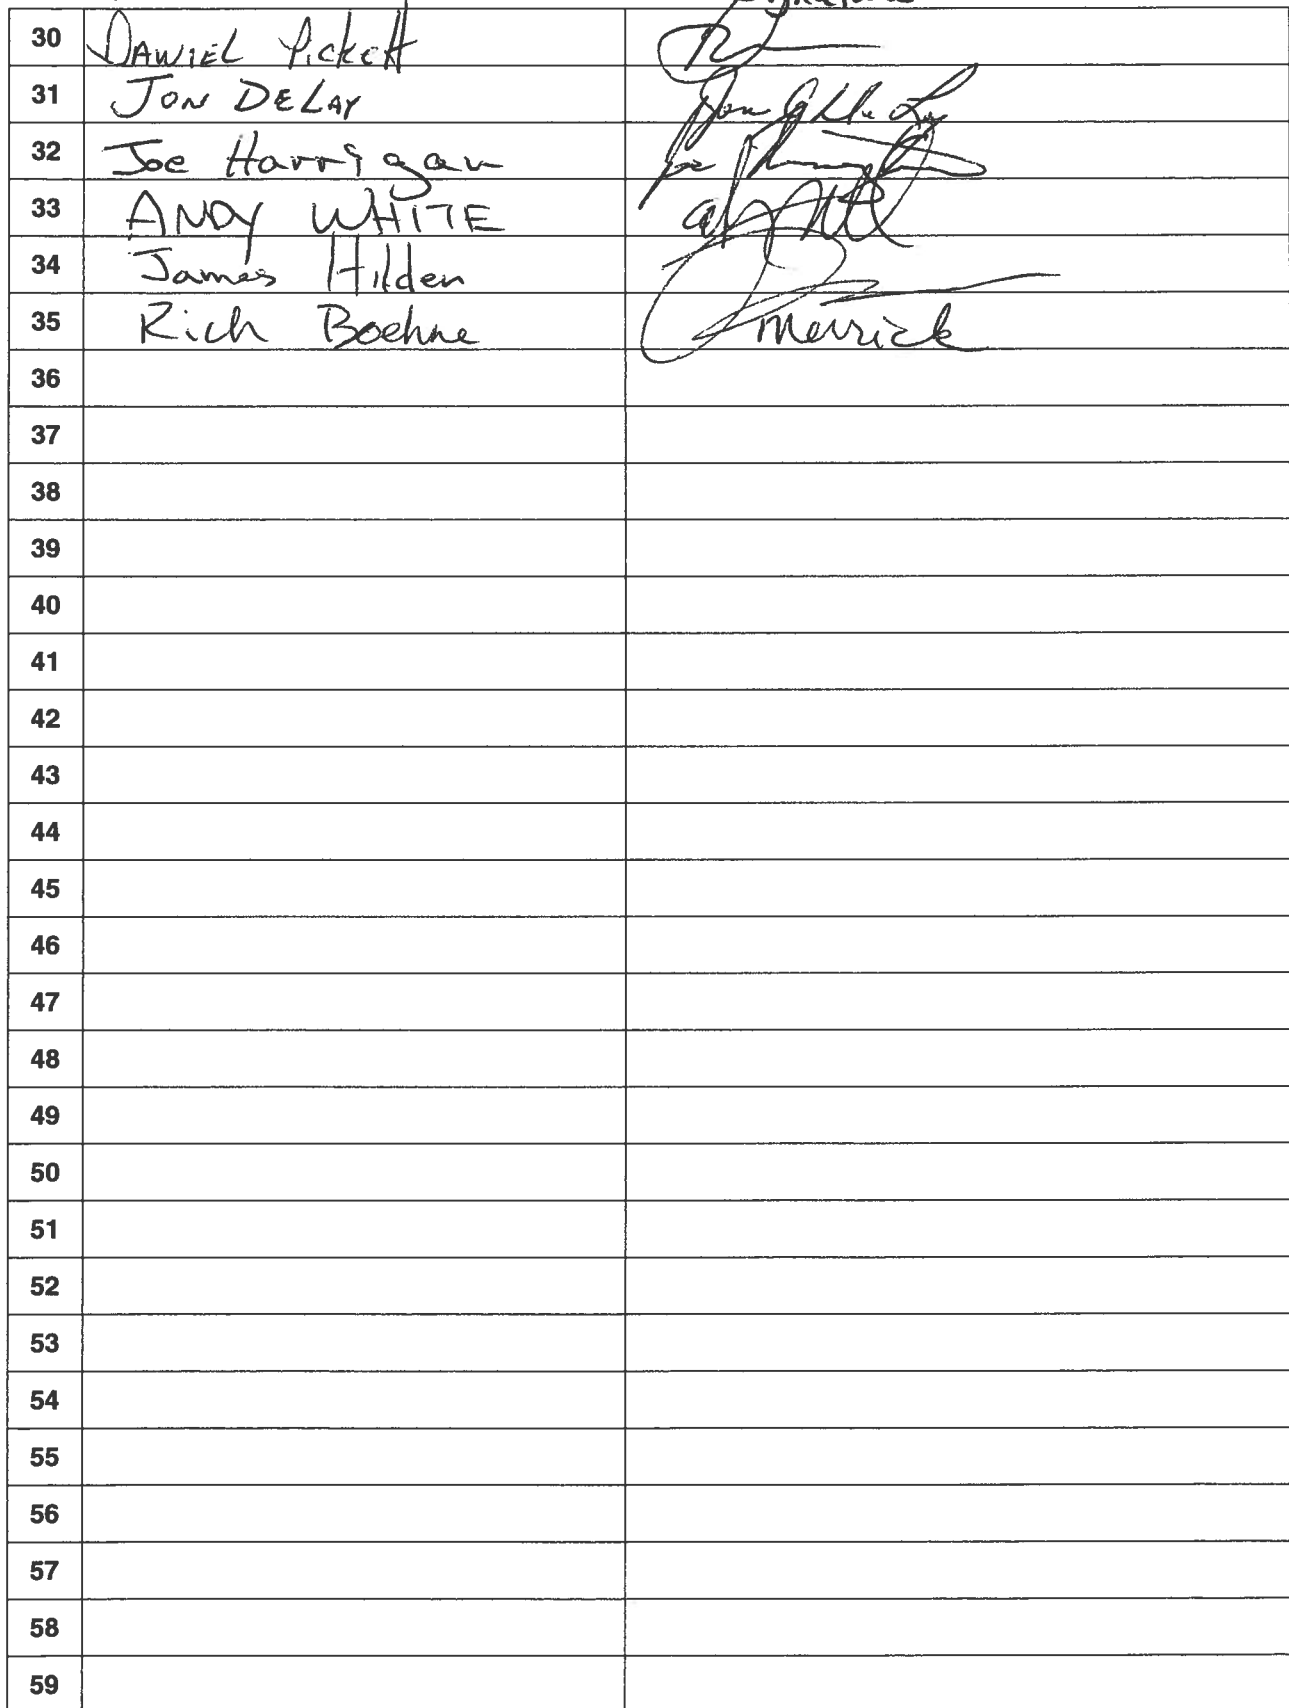 Signature
30 DANIEL Pickett
31 JON DELAY
32 Joe Harrigan
33 ANDY WHITE
34 James Hilden
35 Rich Boehne Merrick
36
37
38
39
40
41
42
43
44
45
46
47
48
49
50
51
52
53
54
55
56
57
58
59